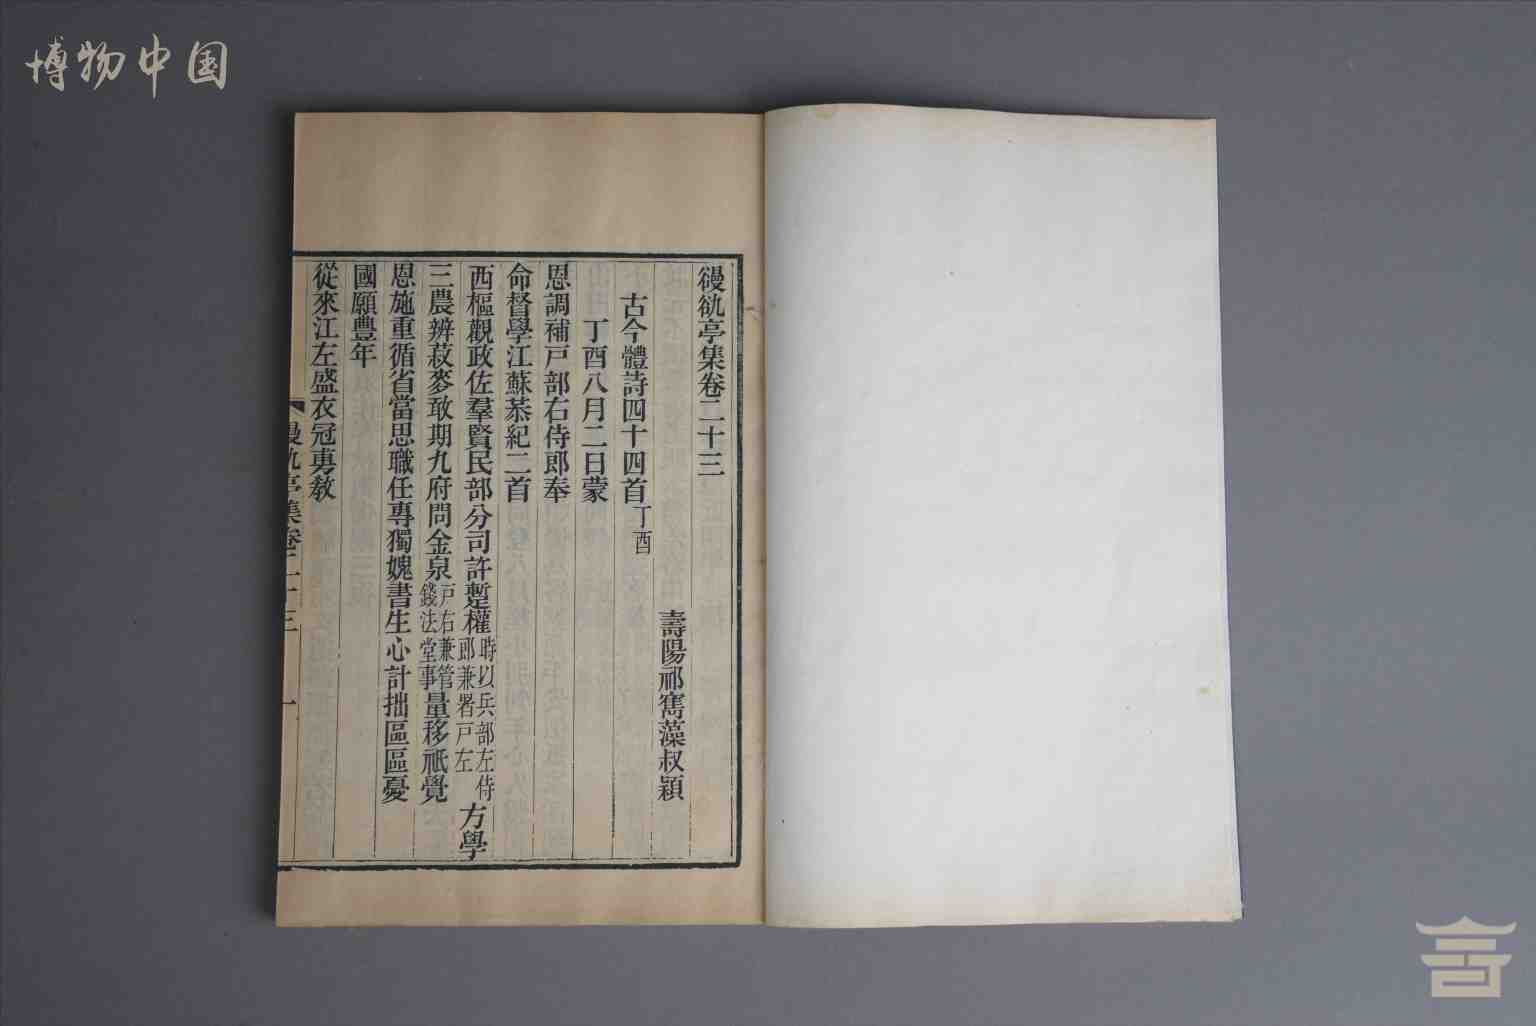 博物中国
䜱䜪亭集卷二十三
壽陽祁寯藻叔穎
古今體詩四十四首丁酉
丁酉八月二日蒙
恩調補戸部右侍郎奉
命督學江蘇恭紀二首
西樞觀政佐羣賢民部分司許蹔權時以兵部左侍郎兼署戸左方學
三農辨菽麥敢期九府問金泉戸右兼管錢法堂事量移祇覺
恩施重循省當思職任專獨媿書生心計拙區區憂
國願豐年
從來江左盛衣冠專敎
亭集卷二十三
一